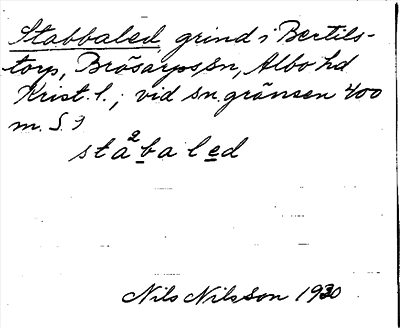 Stabbaled, grind i Bertils-
torp, Brösarps sn, Albo hd
Krist. l.; vid sn.gränsen 400
m. S.
sta²bal̲ed
Nils Nilsson 1930